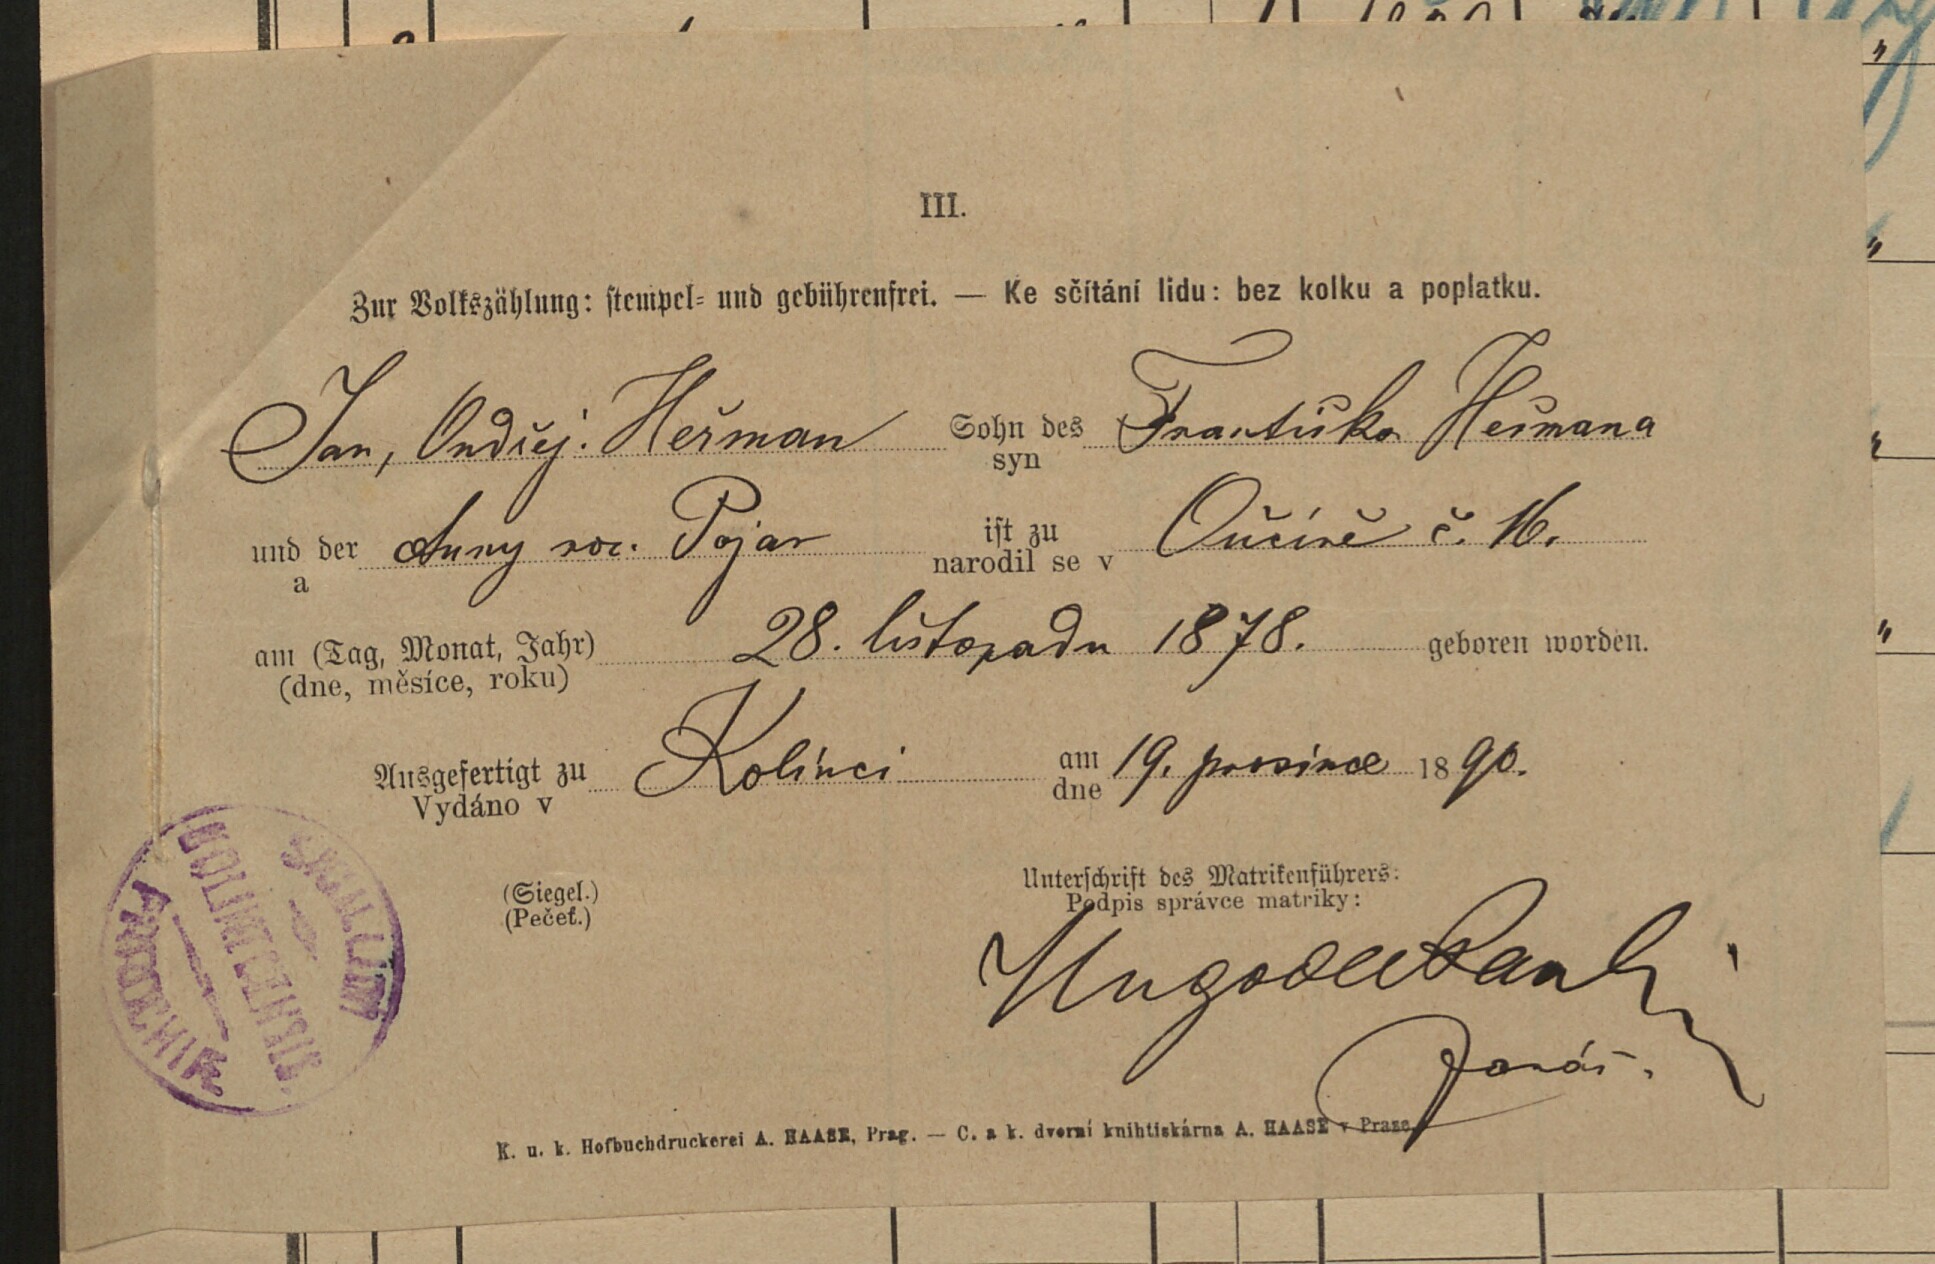 III.
Zur Volkszählung: stempel- und gebührenfrei. — Ke sčítání lidu: bez kolku a poplatku.
Jan, Ondřej Heřman Sohn des Františka Heřmana
syn
und der Anny roz. Pojar ist zu č. 16.
a narodil se v
am (Tag, Monat, Jahr) 28. listopadu 1878. geboren worden.
(dne, měsíce, roku)
Ausgefertigt zu Kolínci am 19. prosince 1890.
Vydáno v dne
(Siegel.) Unterschrift des Matrikenführers:
(Pečeť.) Podpis správce matriky:
K. u. k. Hofbuchdruckerei A. HAASE, Prag. — C. a k. dvorní knihtiskárna A. HAASE v Praze.